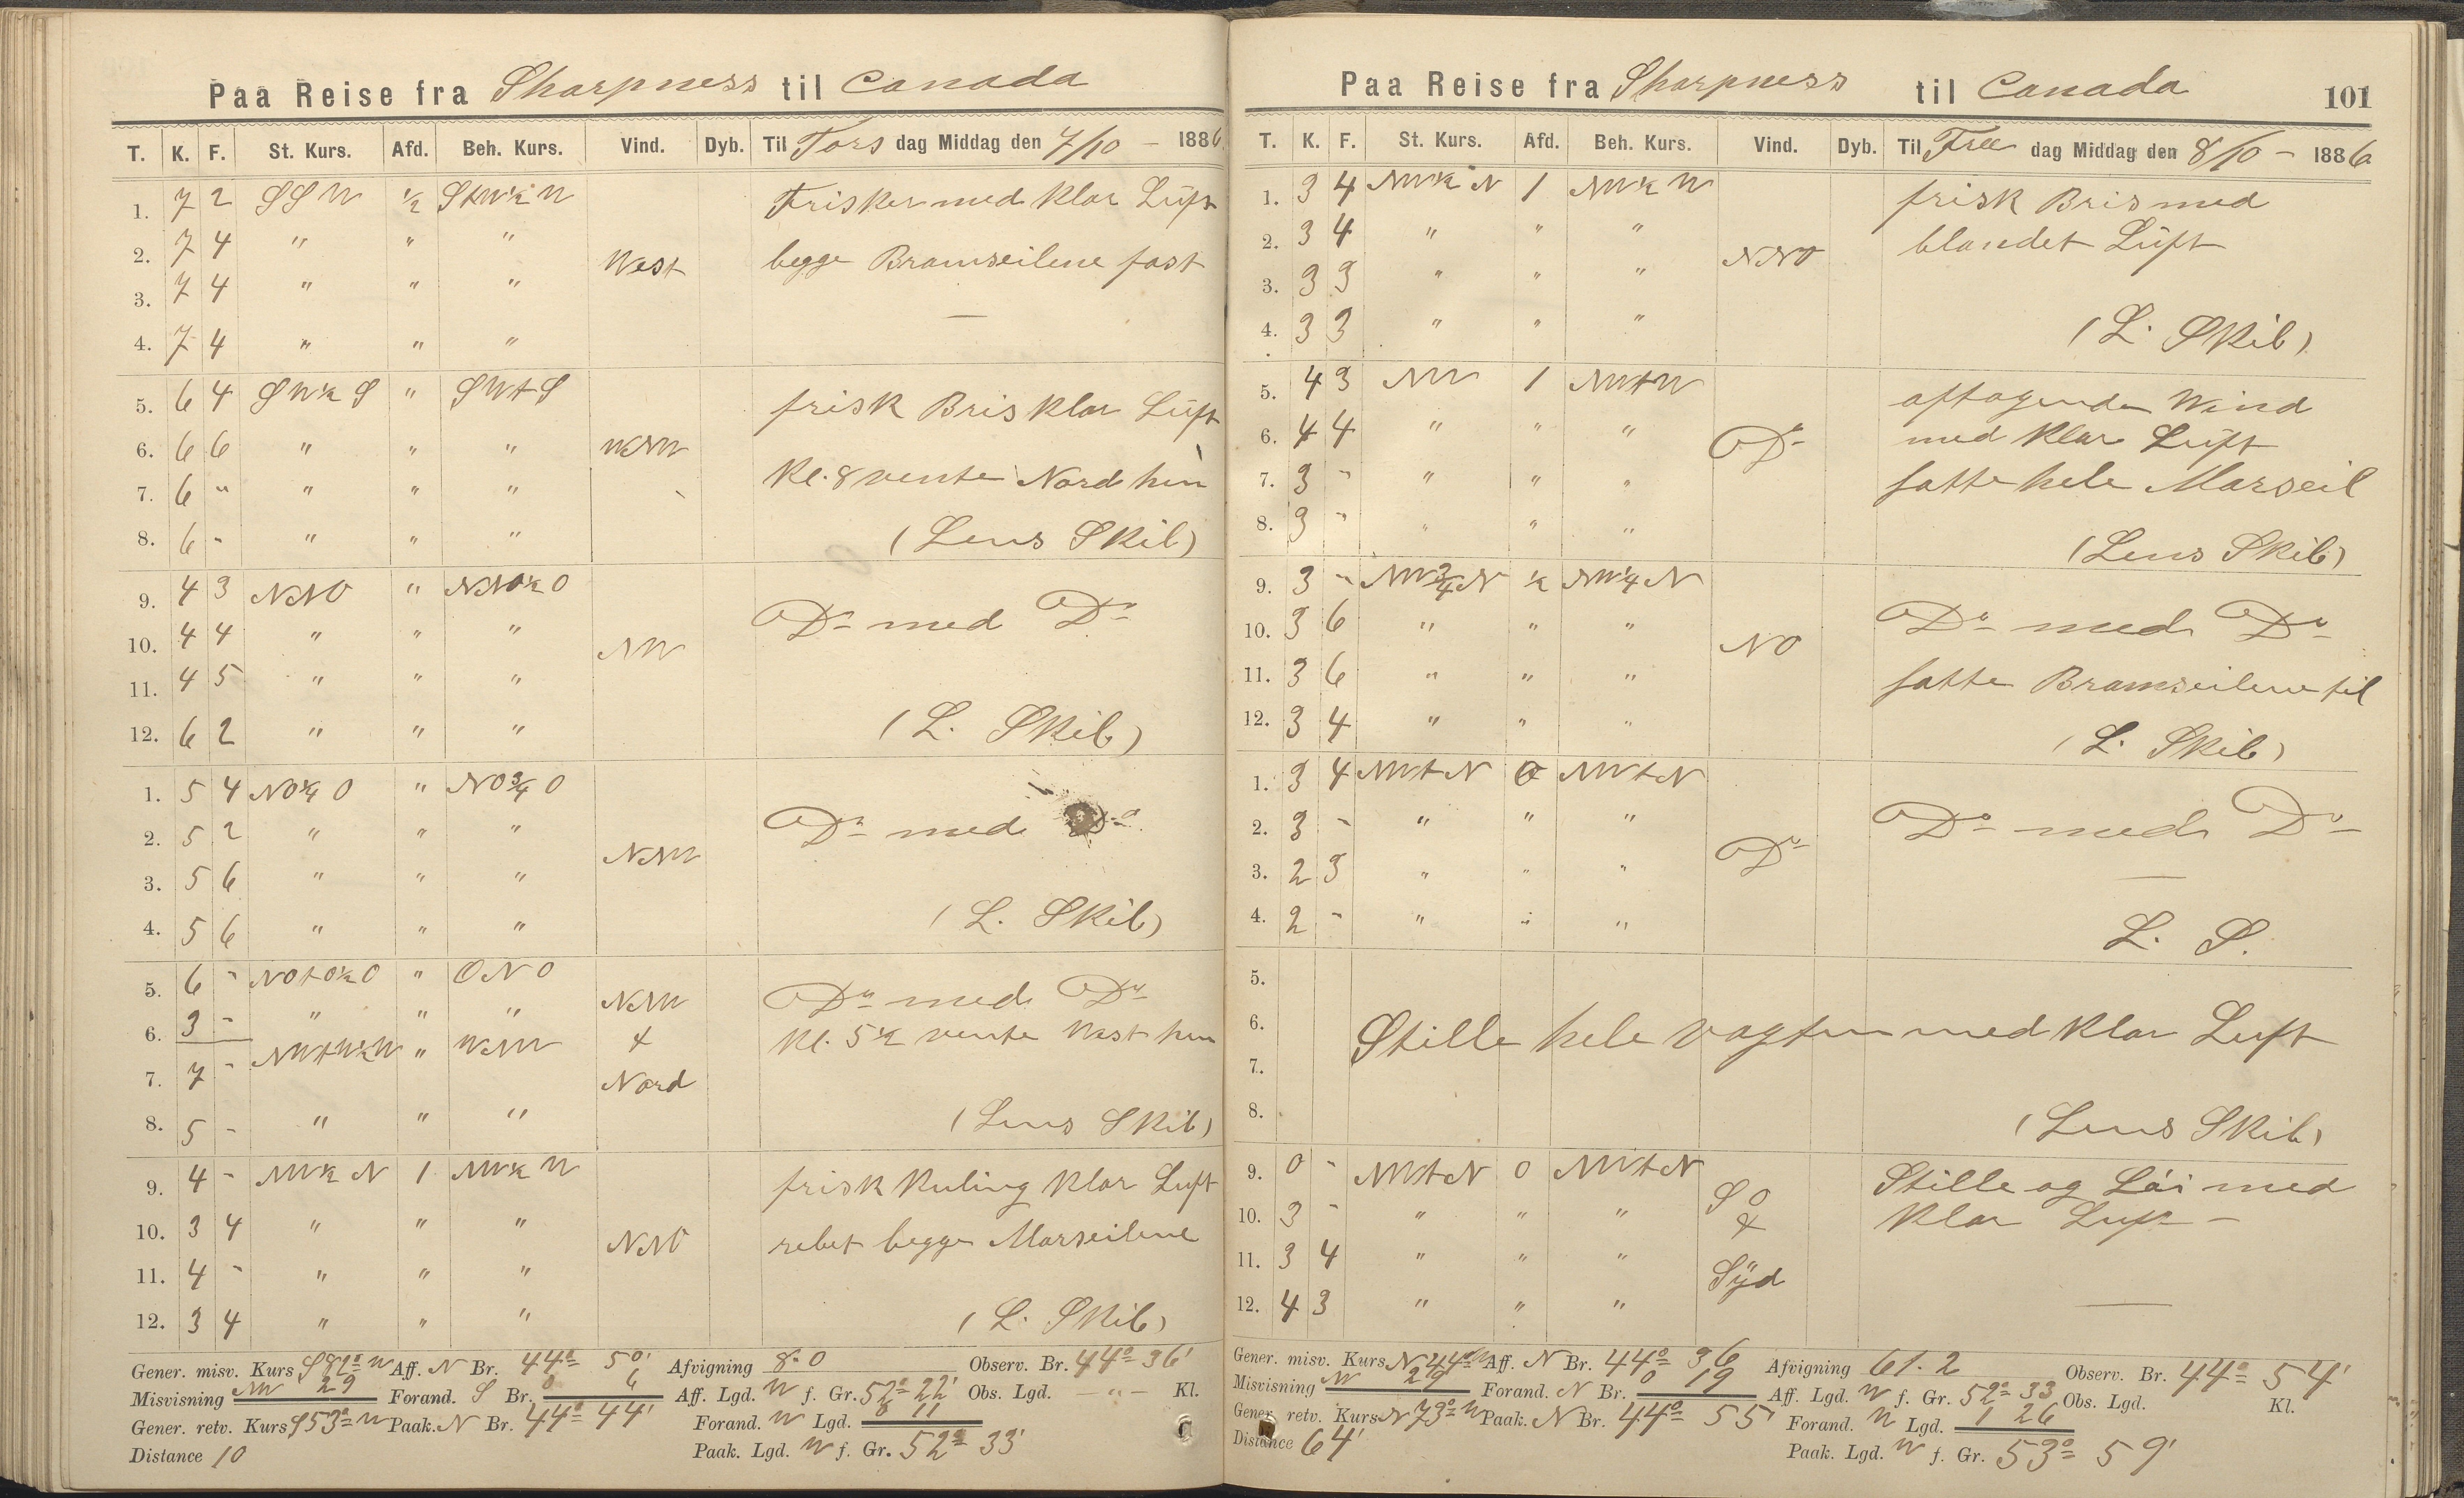 Paa Reise fra Sharpness til Canada
T. K. F. St. Kurs. Afd. Beh. Kurs. Vind. Dyb. Til Tors dag Middag den 7/10 - 1886
1. 7 2 SSW ½ StW½W Frisker med klar Lüft
2. 7 4 " " " West begge Bramseilene fast
3. 7 4 " " "
4. 7 4 " " "
5. 6 4 SW½S " SWtS frisk Bris klar Lüft
6. 6 6 " " " WNW
7. 6 " " " " Kl. 8 vente Nord hen
8. 6 - " " " (Lens Skib)
9. 4 3 NNO " NNO½O Do med Do
10. 4 4 " " " NW
11. 4 5 " " "
12. 6 2 " " " (L. Skib)
1. 5 4 NO¼O " NO¾O Do med Do
2. 5 2 " " " NNW
3. 5 6 " " "
4. 5 6 " " " (L. Skib)
5. 6 - NOtO½O " ONO NNW Do med Do
6. 3 - " " " & Kl. 5½ vente West hen
7. 7 - NWtW½W " WNW Nord
8. 5 - " " " (Lens Skib)
9. 4 - NW½N 1 NW½W frisk Kuling klar Luft
10. 3 4 " " " NNO rebet begge Marseilene
11. 4 - " " "
12. 3 4 " " " (L. Skib)
Gener. misv. Kurs S82°W Aff. N Br. 44° 50' Afvigning 8.0 Observ. Br. 44° 36'
Misvisning W 29 Forand. S Br. 0 6 Aff. Lgd. W f. Gr. 52° 22' Obs. Lgd. - " - Kl.
Gener. retv. Kurs S53°W Paak. N Br. 44° 44' Forand. W Lgd. 0 11
Distance 10 Paak. Lgd. W f. Gr. 52° 33'
Paa Reise fra Sharpness til Canada 101
T. K. F. St. Kurs. Afd. Beh. Kurs. Vind. Dyb. Til Fre dag Middag den 8/10 - 1886
1. 3 4 NW½N 1 NW½W frisk Bris med
2. 3 4 " " " NNO blandet Lüft
3. 3 3 " " "
4. 3 3 " " " (L. Skib)
5. 4 3 NW 1 NWtW aftagende Wind
6. 4 4 " " " Do med klar Lüft
7. 3 - " " " satte hele Marseil
8. 3 - " " " (Lens Skib)
9. 3 - NW¾N ½ NW¼N Do med Do
10. 3 6 " " " NO
11. 3 6 " " " satte Bramseilene til
12. 3 4 " " " (L. Skib)
1. 3 4 NWtN 0 NWtN Do med Do
2. 3 - " " "
3. 2 3 " " " Do
4. 2 - " " " L. S.
5.
6. Stille hele vagten med klar Luft
7.
8. (Lens Skib)
9. 0 - NWtN 0 NWtN SO Stille og Löi med
10. 3 - " " " & klar Luft -
11. 3 4 " " " Syd
12. 4 3 " " "
Gener. misv. Kurs N44°W Aff. N Br. 44° 36 Afvigning 61.2 Observ. Br. 44° 54'
Misvisning W 29 Forand. N Br. 0 19 Aff. Lgd. W f. Gr. 52° 33 Obs. Lgd. Kl.
Gener. retv. Kurs N73°W Paak. N Br. 44° 55' Forand. W Lgd. 1 26
Distance 64' Paak. Lgd. W f. Gr. 53° 59'